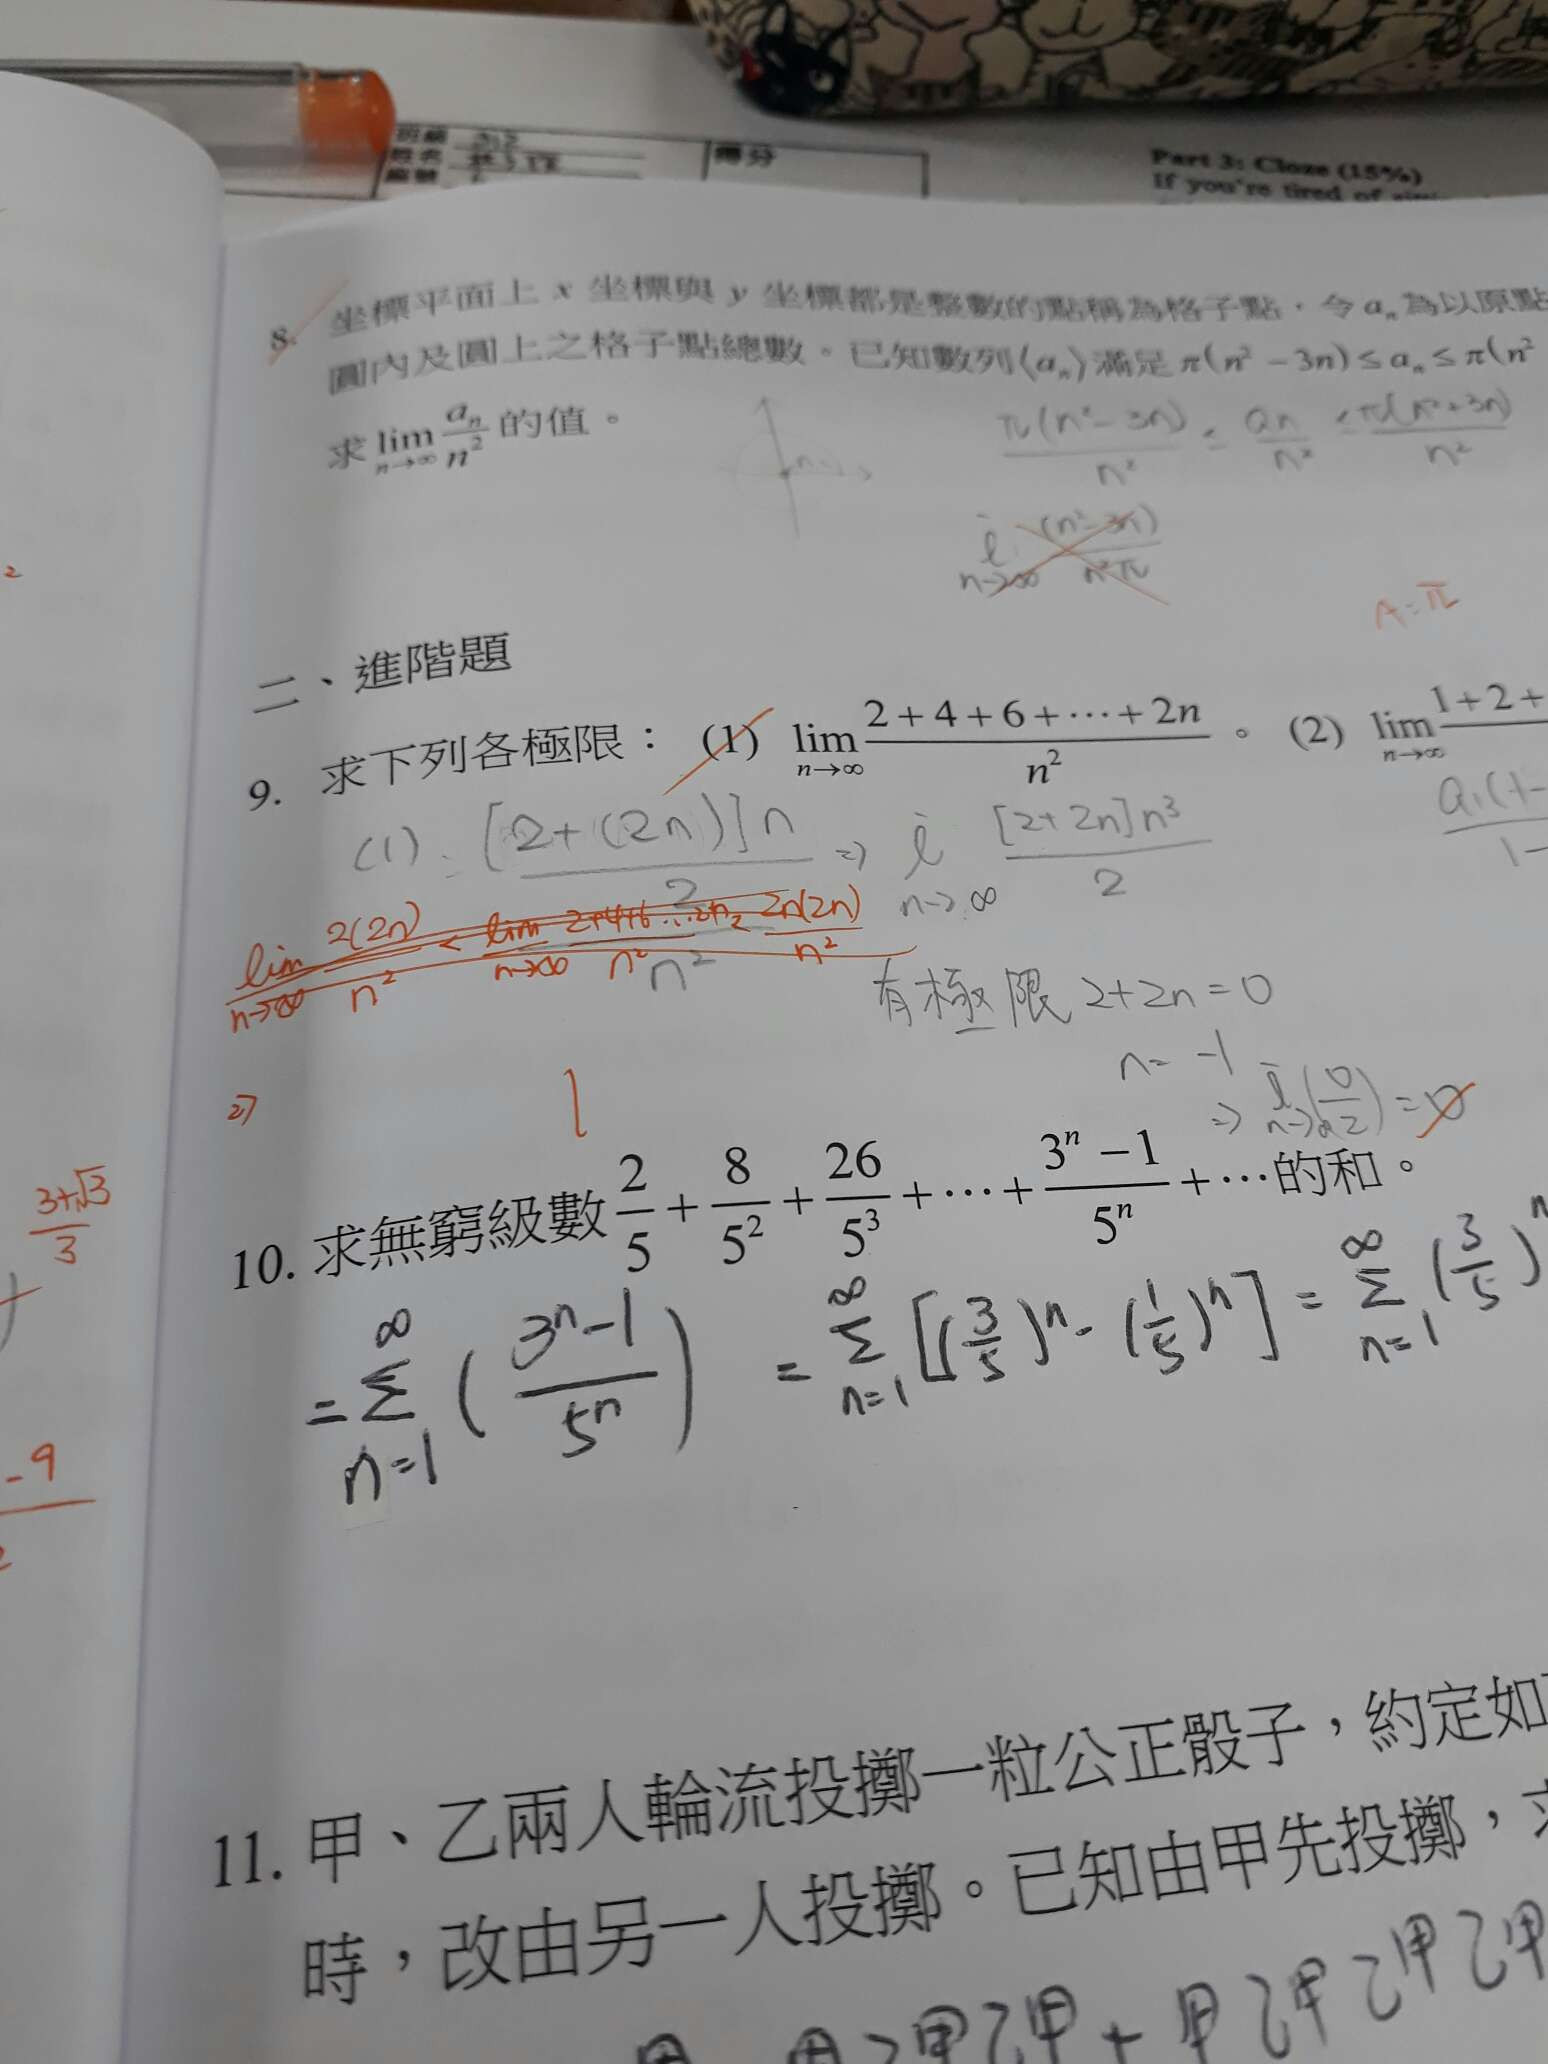 得分
Part 3: Cloze (15%)
If you're tired of
8. 坐標平面上 x 坐標與 y 坐標都是整數的點稱為格子點，令 aₙ 為以原點
圓內及圓上之格子點總數。已知數列⟨aₙ⟩滿足 π(n² − 3n) ≤ aₙ ≤ π(n²
求 lim n→∞ aₙ/n² 的值。
π(n²−3n)/n² ≤ an/n² ≤ π(n²+3n)/n²
n→∞ (n²−3n)/n²π
A=π
二、進階題
9. 求下列各極限： (1) lim n→∞ (2+4+6+⋯+2n)/n² 。 (2) lim n→∞ 1+2+
(1). [2+(2n)]n/2 / n² ⇒ l n→∞ [2+2n]n³/2
a₁(1−
1−
lim n→∞ 2(2n)/n² < lim n→∞ 2+4+6...2n/n² < 2n(2n)/n²
有極限 2+2n=0
n=-1
⇒ l n→∞ (0/2) = 0
1
3+√3/3
10. 求無窮級數 2/5 + 8/5² + 26/5³ + ⋯ + (3ⁿ − 1)/5ⁿ + ⋯ 的和。
= ∞Σn=1 ((3ⁿ−1)/5ⁿ) = ∞Σn=1 [(3/5)ⁿ − (1/5)ⁿ] = ∞Σn=1 (3/5)ⁿ
-9
11. 甲、乙兩人輪流投擲一粒公正骰子，約定如
時，改由另一人投擲。已知由甲先投擲，
甲 甲乙甲乙甲 + 甲乙甲乙甲乙甲